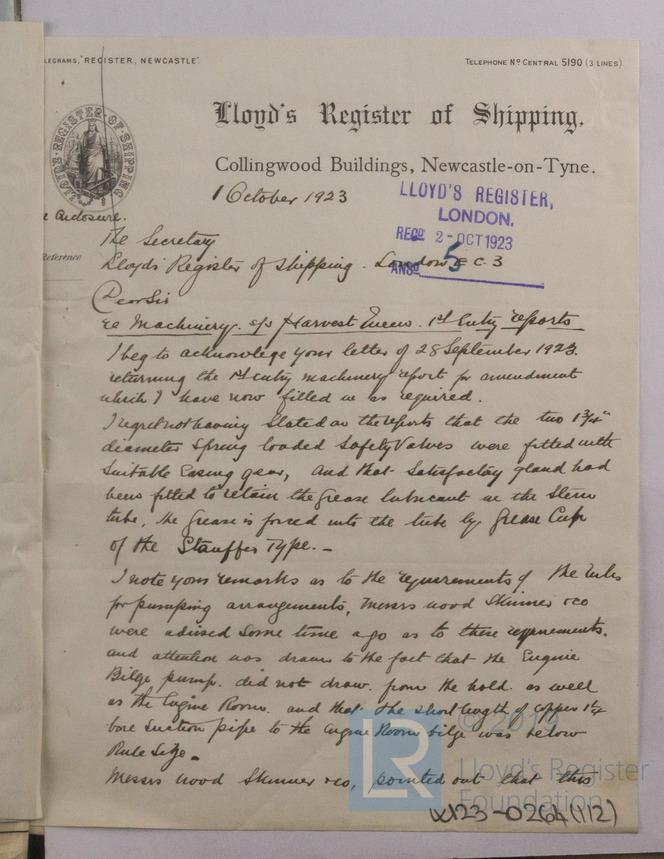 LEGRAMS, "REGISTER, NEWCASTLE".
TELEPHONE No CENTRAL 5190 (3 LINES)
LLOYD'S REGISTER OF SHIPPING
Lloyd's Register of Shipping.
Collingwood Buildings, Newcastle-on-Tyne.
1 October 1923
LLOYD'S REGISTER,
LONDON.
RECD 2-OCT 1923
ANSD 5
Enclosure.
Reference
The Secretary
Lloyds Register of Shipping. London E C 3
Dear Sir
re Machinery. s/s Harvest Queen. 1st Entry reports
I beg to acknowlege your letter of 28 September 1923.
returning the 1st entry machinery report for amendment
which I have now filled in as required.
I regret not having stated on the reports that the two 1 3/4"
diameter Spring loaded Safety Valves were fitted with
suitable Easing gear, and that satisfactory gland had
been fitted to retain the grease lubricant in the Stern
tube, the grease is forced into the tube by Grease Cup
of the Stauffer Type. -
I note your remarks as to the requirements of the rules
for pumping arrangements, Messrs Wood Skinner & Co
were advised some time ago as to these requirements.
and attention was drawn to the fact that the Engine
Bilge pump. did not draw from the hold as well
as the Engine Room. and that the short length of copper 1 1/4
bore suction pipe to the Engine Room bilge was below
Rule Size.
Messrs Wood Skinner & Co, pointed out that this
© 2019
LR
Lloyd's Register
Foundation
W123-0264 (1/2)